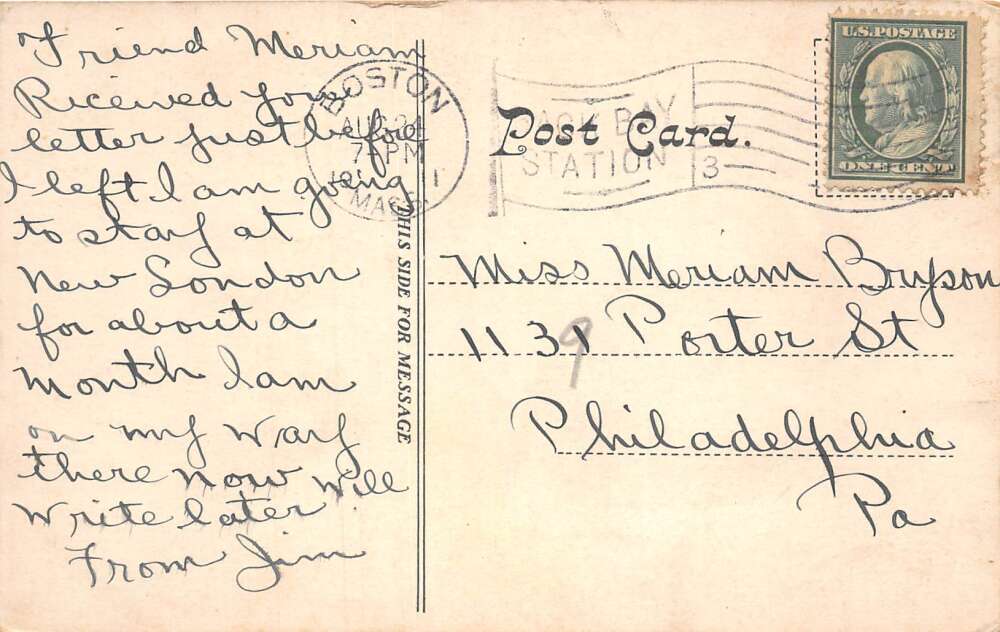 Friend Meriam
Received your
letter just before
I left I am going
to stay at
New London
for about a
month I am
on my way
there now will
write later
From Jim
THIS SIDE FOR MESSAGE
BOSTON
AUG 24
7 PM
1911
MASS
BACK BAY
STATION
3
Post Card.
U.S. POSTAGE
ONE CENT
Miss Meriam Bryson
1131 Porter St
9
Philadelphia
Pa